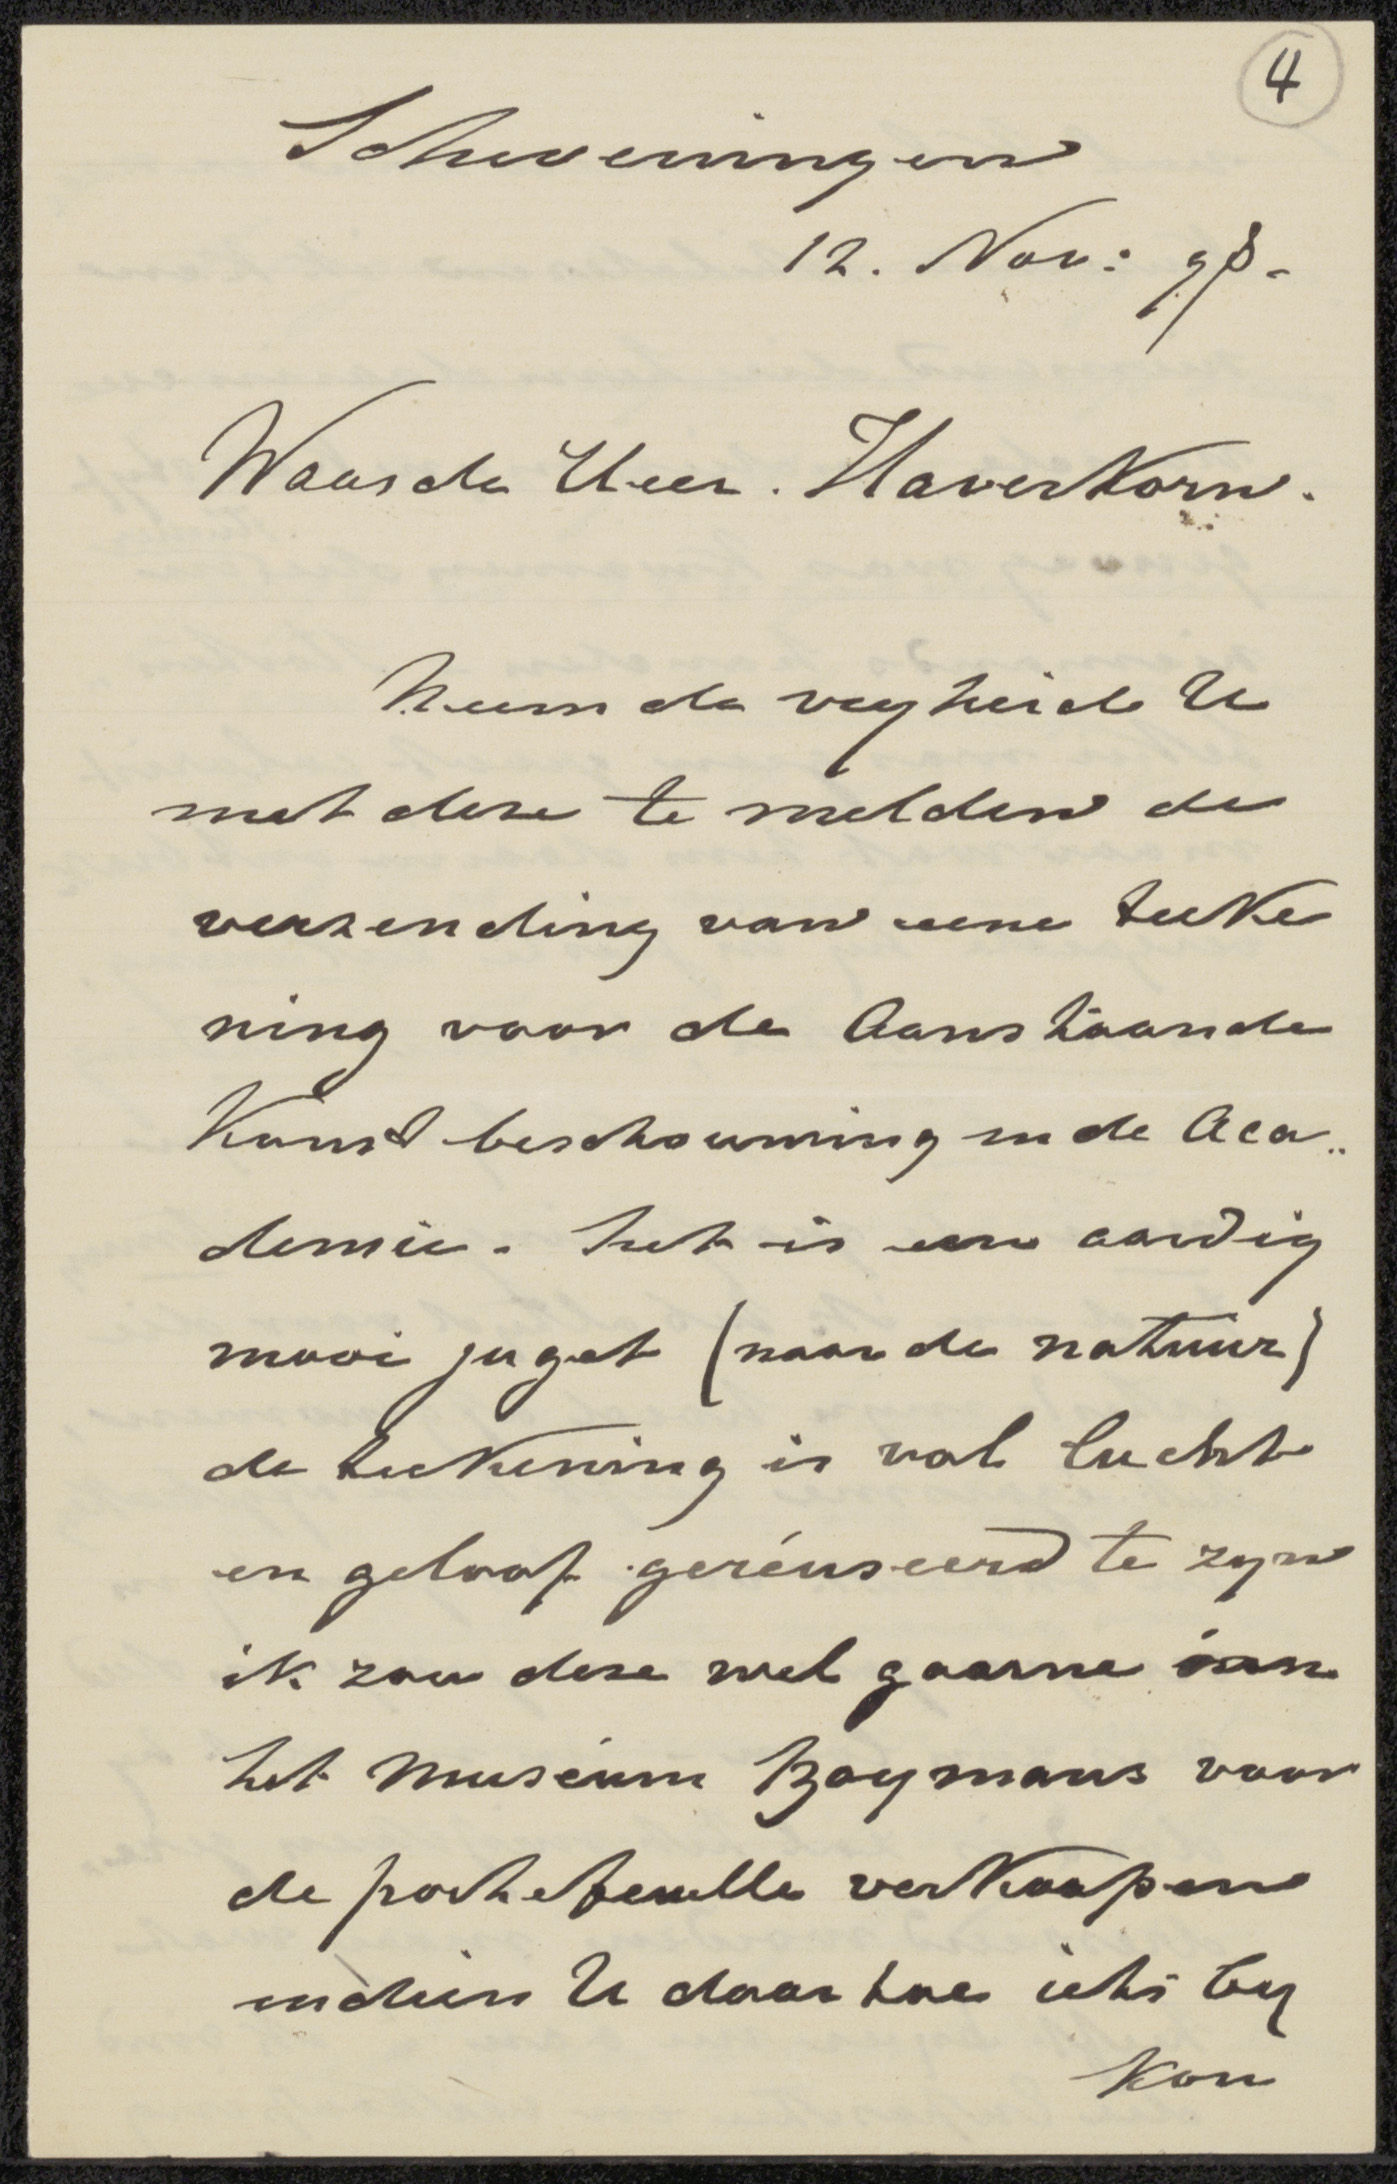 4
Scheveningen
12. Nov: 98.
Waarde Heer. Haverkorn.
Neem de vryheid U
met deze te melden de
verzending van eene teeke
ning voor de aanstaande
Kunstbeschouwing in de Aca..
demie. het is een aardig
mooi juget (naar de natuur)
de teekening is vol lucht
en geloof geréusseerd te zyn
ik zou deze wel gaarne aan
het Muséum Boymans voor
de portefeuille verkoopen
indien U daar toe iets by
Kon